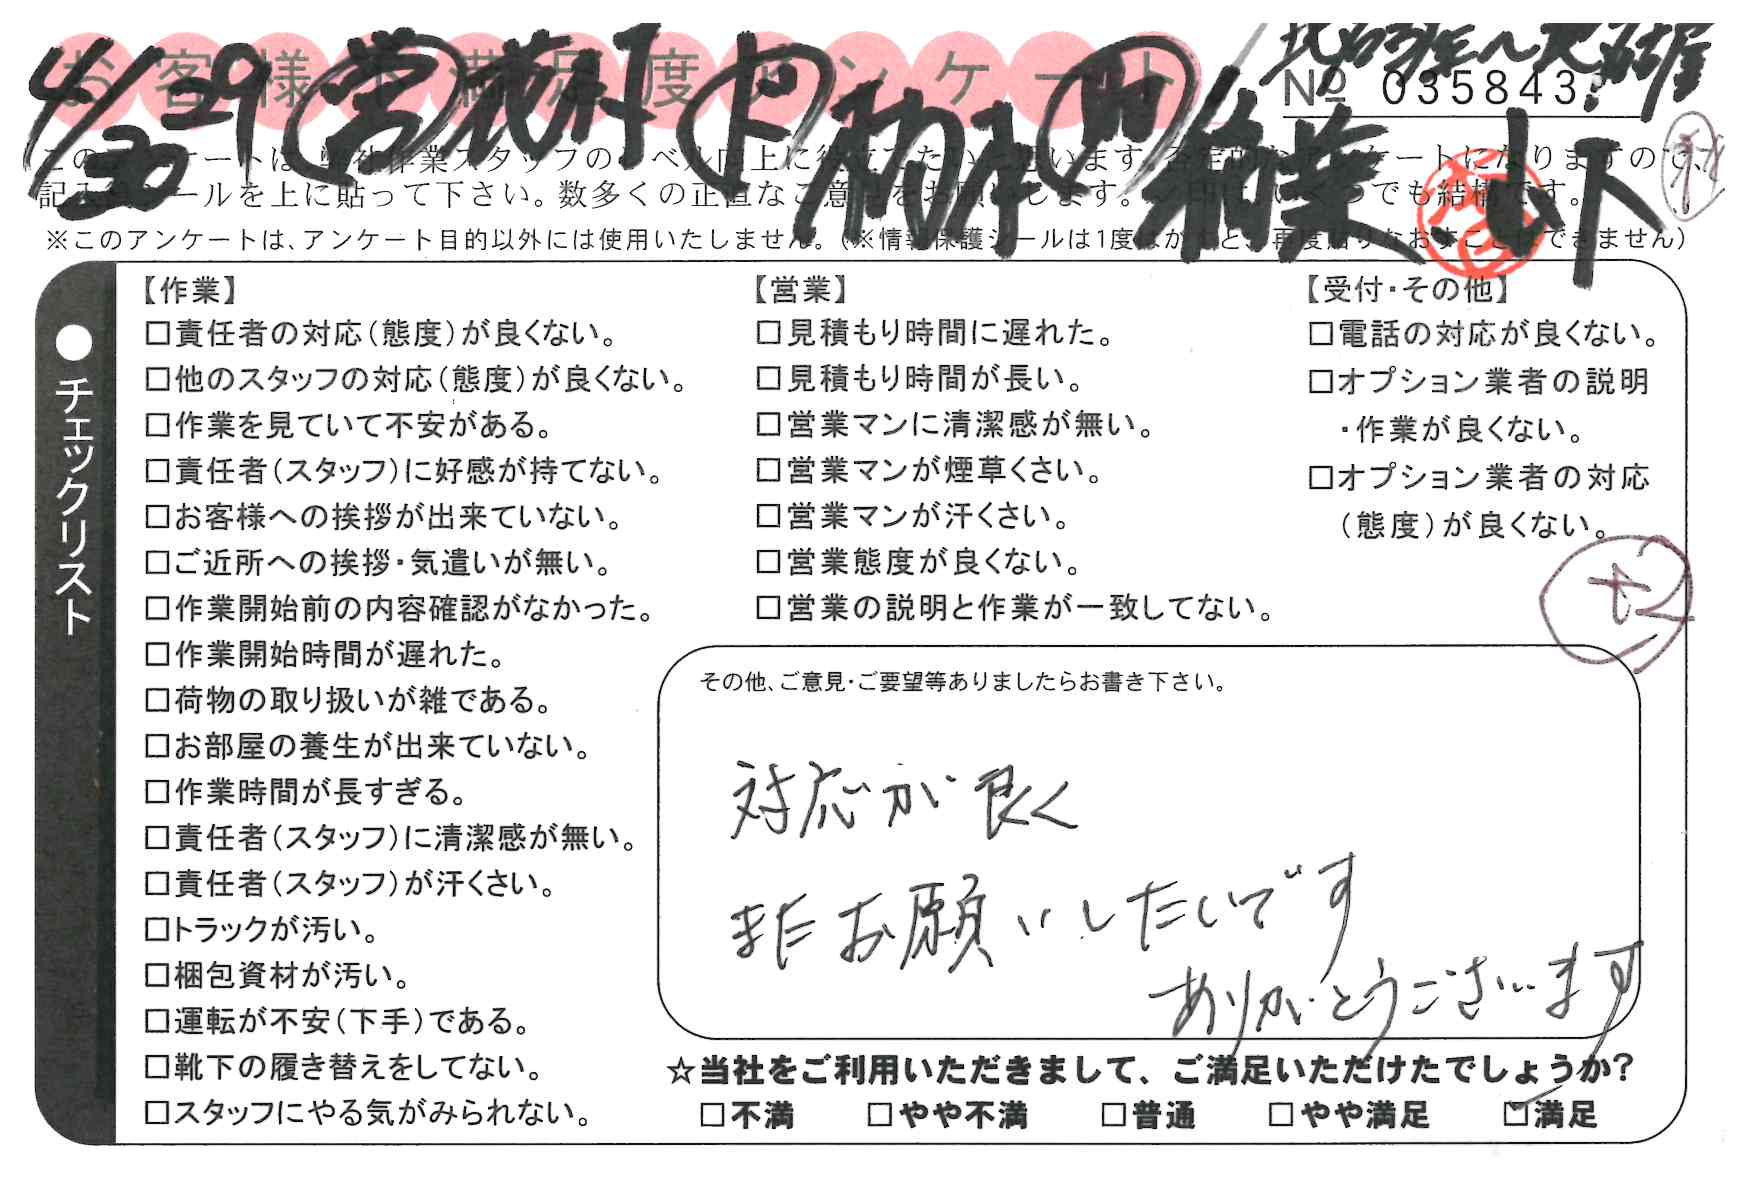 お客様不満足度アンケート
№ 035843
4/29 30 (営)
稲葉 山下
このアンケートは、弊社作業スタッフのレベル向上に役立てたいと思います。否定的なアンケートになりますので、
記入後シールを上に貼って下さい。数多くの正直なご意見をお願いします。
※このアンケートは、アンケート目的以外には使用いたしません。(※情報保護シールは1度はがすと、再度貼りなおすことはできません)
●チェックリスト
【作業】
□責任者の対応(態度)が良くない。
□他のスタッフの対応(態度)が良くない。
□作業を見ていて不安がある。
□責任者(スタッフ)に好感が持てない。
□お客様への挨拶が出来ていない。
□ご近所への挨拶・気遣いが無い。
□作業開始前の内容確認がなかった。
□作業開始時間が遅れた。
□荷物の取り扱いが雑である。
□お部屋の養生が出来ていない。
□作業時間が長すぎる。
□責任者(スタッフ)に清潔感が無い。
□責任者(スタッフ)が汗くさい。
□トラックが汚い。
□梱包資材が汚い。
□運転が不安(下手)である。
□靴下の履き替えをしてない。
□スタッフにやる気がみられない。
【営業】
□見積もり時間に遅れた。
□見積もり時間が長い。
□営業マンに清潔感が無い。
□営業マンが煙草くさい。
□営業マンが汗くさい。
□営業態度が良くない。
□営業の説明と作業が一致してない。
【受付・その他】
□電話の対応が良くない。
□オプション業者の説明
・作業が良くない。
□オプション業者の対応
(態度)が良くない。
その他、ご意見・ご要望等ありましたらお書き下さい。
対応が良く
またお願いしたいです
ありがとうございます
☆当社をご利用いただきまして、ご満足いただけたでしょうか?
□不満 □やや不満 □普通 □やや満足 ☑満足